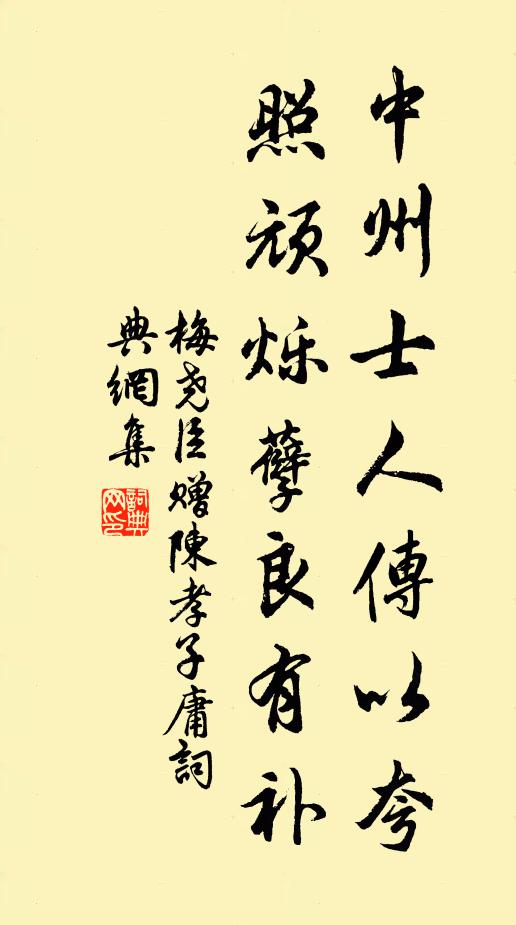 中州士人傳以夸
照頑烁孽良有补
梅尧臣赠陳孝子庸詞
典網集
詞典
网印